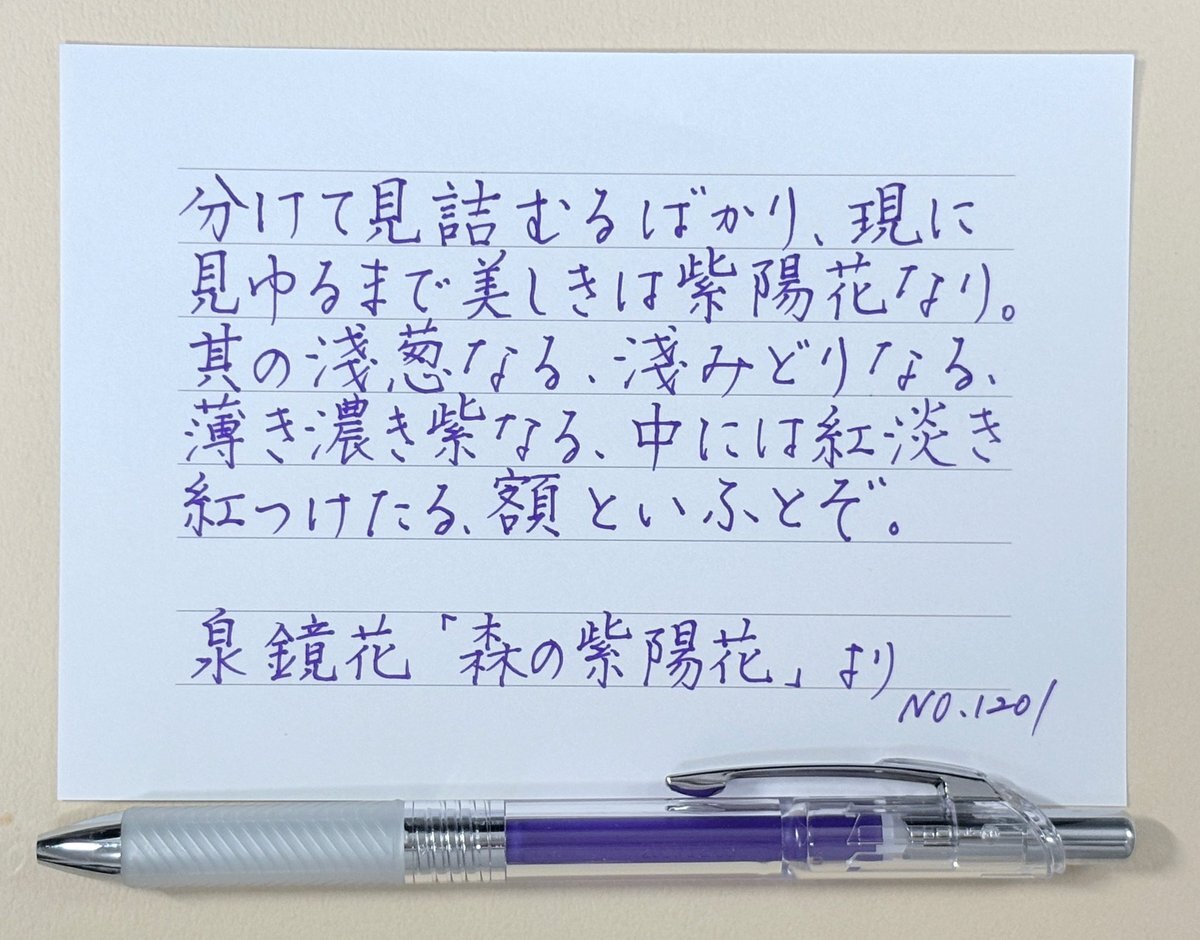 分けて見詰むるばかり、現に
見ゆるまで美しきは紫陽花なり。
其の淺葱なる、淺みどりなる、
薄き濃き紫なる、中には紅淡き
紅つけたる、額といふとぞ。
泉鏡花「森の紫陽花」より
NO.1201